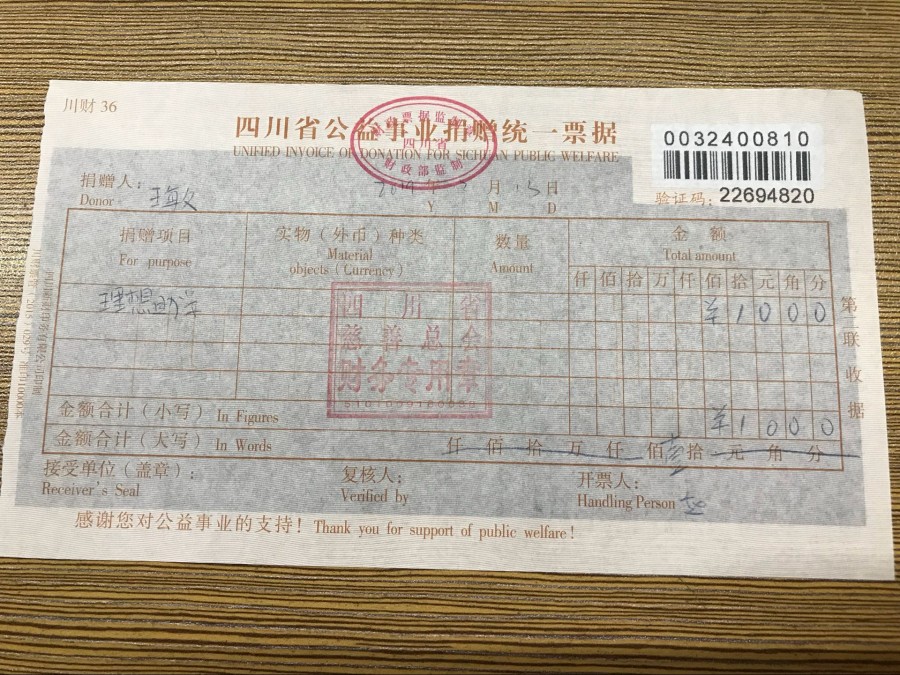 川财 36
四川省公益事业捐赠统一票据
UNIFIED INVOICE OF DONATION FOR SICHUAN PUBLIC WELFARE
四川省
财政部监制
0032400810
验证码: 22694820
捐赠人:
Donor
2019 年 月 15 日
Y M D
捐赠项目 实物(外币)种类 数量 金额
For purpose Material objects (Currency) Amount Total amount
仟 佰 拾 万 仟 佰 拾 元 角 分
理想助学 ¥ 1 0 0 0
四川省
慈善总会
财务专用章
第二联 收据
金额合计(小写) In Figures ¥ 1 0 0 0
金额合计(大写) In Words 仟 佰 拾 万 仟 佰 壹 拾 元 角 分
接受单位(盖章): 复核人: 开票人:
Receiver's Seal Verified by Handling Person
感谢您对公益事业的支持! Thank you for support of public welfare!